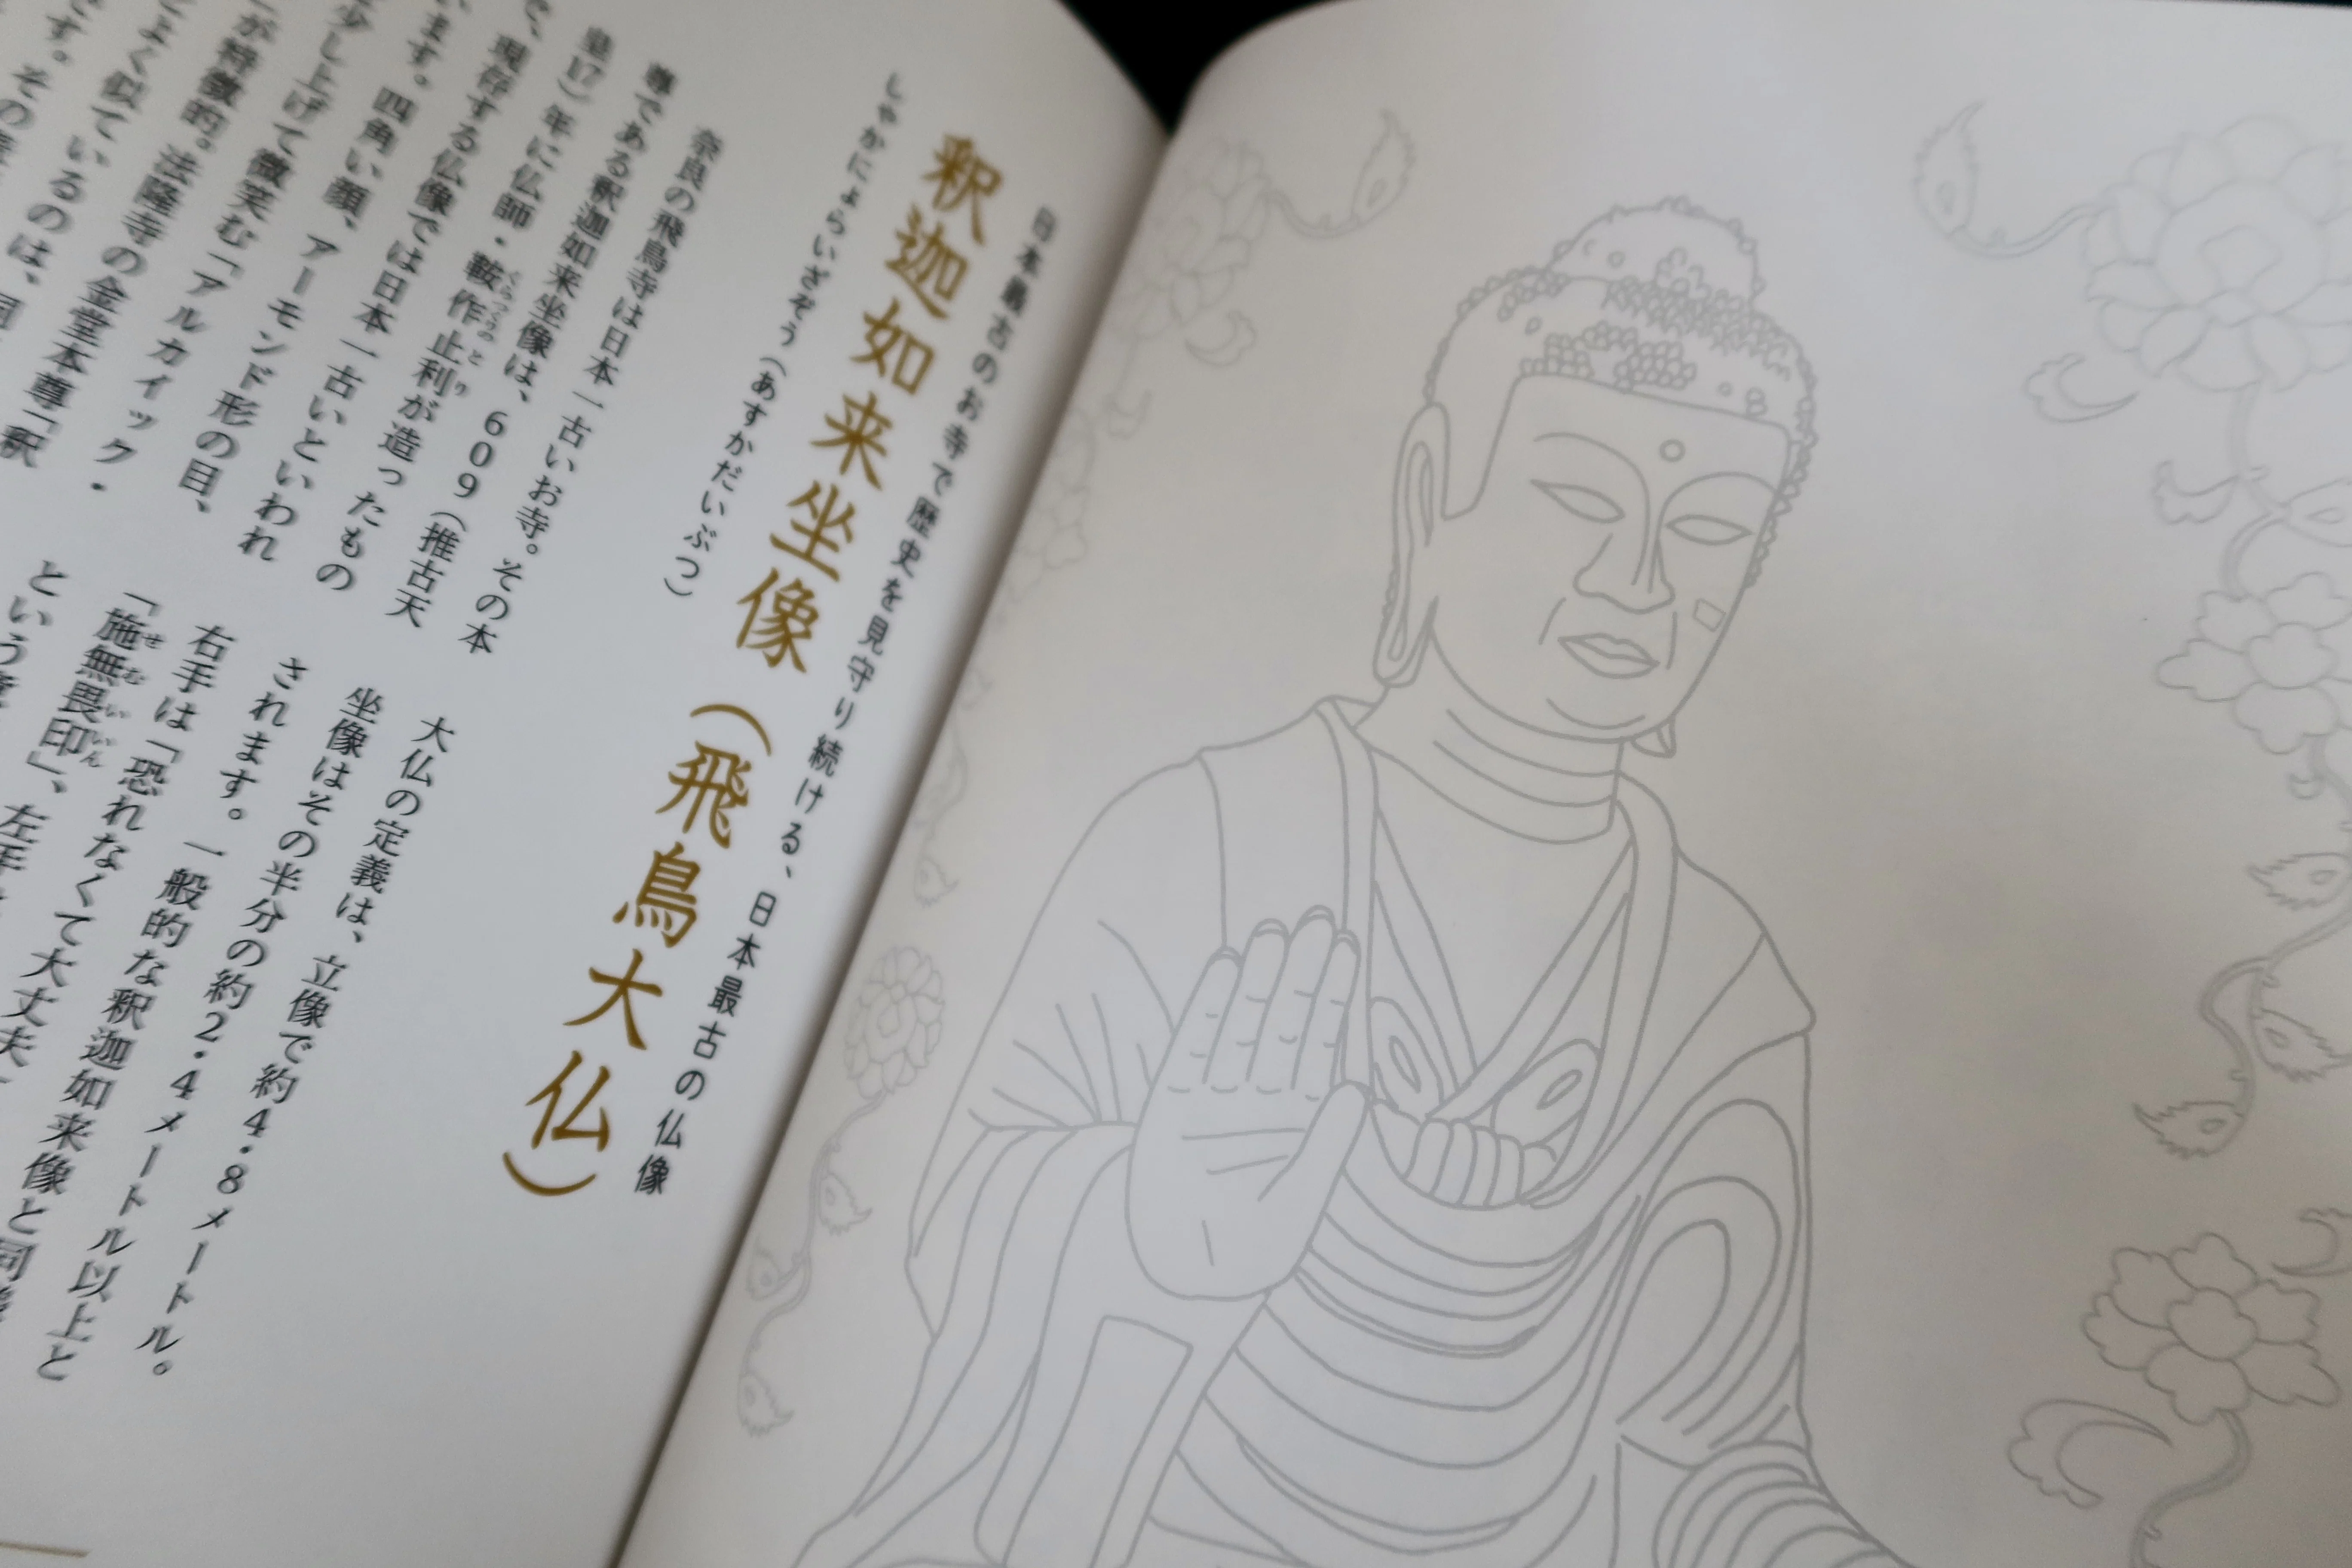 日本最古のお寺で歴史を見守り続ける、日本最古の仏像
釈迦如来坐像（飛鳥大仏）
しゃかにょらいざぞう（あすかだいぶつ）
奈良の飛鳥寺は日本一古いお寺。その本
尊である釈迦如来坐像は、609（推古天
皇17）年に仏師・鞍作止利が造ったもの
で、現存する仏像では日本一古いといわれ
います。四角い顔、アーモンド形の目、
少し上げて微笑む「アルカイック・
が特徴的。法隆寺の金堂本尊「釈
よく似ているのは、同
す。その
大仏の定義は、立像で約4.8メートル。
坐像はその半分の約2.4メートル以上と
されます。一般的な釈迦如来像と同
右手は「恐れなくて大丈夫
「施無畏印」、左手
という